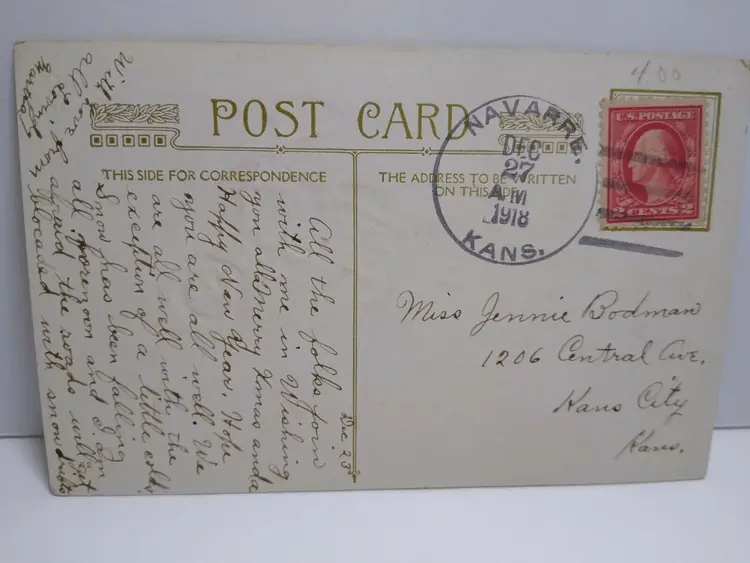 4.00
POST CARD
THIS SIDE FOR CORRESPONDENCE
THE ADDRESS TO BE WRITTEN
ON THIS SIDE
NAVARRE,
DEC
27
AM
1918
KANS.
U.S. POSTAGE
2 CENTS 2
Dec. 23
All the folks join
with me in Wishing
you all Merry Xmas and a
Happy New Year. Hope
you are all well. We
are all well with the
exception of a little cold.
Snow has been falling
all forenoon and I am
afraid the roads will get
blocaded with snow drifts
With
love
from
Miss Jennie Bodman
1206 Central Ave.
Kans City
Kans.